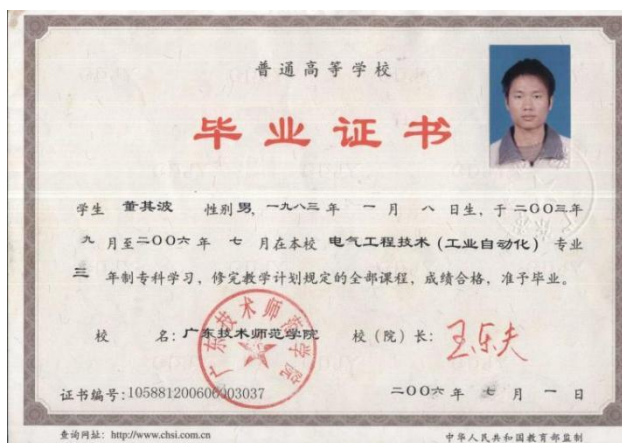 普通高等学校
毕业证书
学生 董其波 性别 男, 一九八三年 一 月 八 日生, 于二〇〇三年
九 月至二〇〇六年 七 月在本校 电气工程技术(工业自动化) 专业
三 年制专科学习, 修完教学计划规定的全部课程, 成绩合格, 准予毕业。
校 名: 广东技术师范学院 校(院)长: 王乐夫
广东技术师范学院
证书编号: 105881200606003037 二〇〇六年 七 月 一 日
查询网址: http://www.chsi.com.cn 中华人民共和国教育部监制